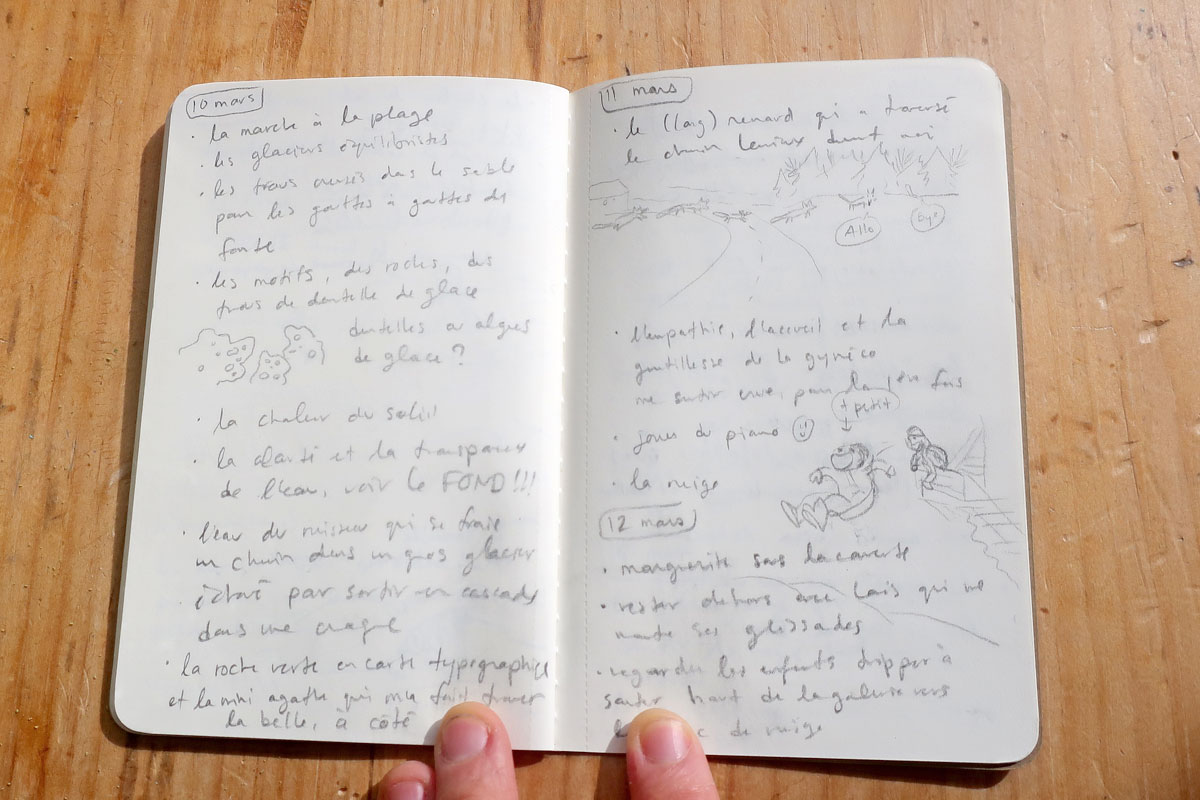 10 mars
· la marche à la plage
· les glaciers équilibristes
· les trous creusés dans le sable
par les gouttes à gouttes de
fonte
· les motifs, des roches, des
trous de dentelle de glace
dentelles ou algues
de glace ?
· la chaleur du soleil
· la clarté et la transparence
de l'eau, voir le FOND !!!
· l'eau du ruisseau qui se fraie
un chemin dans un gros glacier
pour sortir en cascade
dans une craque
· la roche verte en carte typographique
et la mini agathe qui m'a fait trouver
la belle, à côté
11 mars
· le renard qui a traversé
le chemin devant moi
Allo
Bye
· l'empathie, l'accueil et la
gentillesse de la gynéco
me sentir pour la 1ère fois
+ petit
· jouer du piano
· la neige
12 mars
· marguerite sous la couverte
· rester dehors avec qui me
montre ses glissades
· regarder les enfants tripper à
sauter haut de la galerie vers
de neige